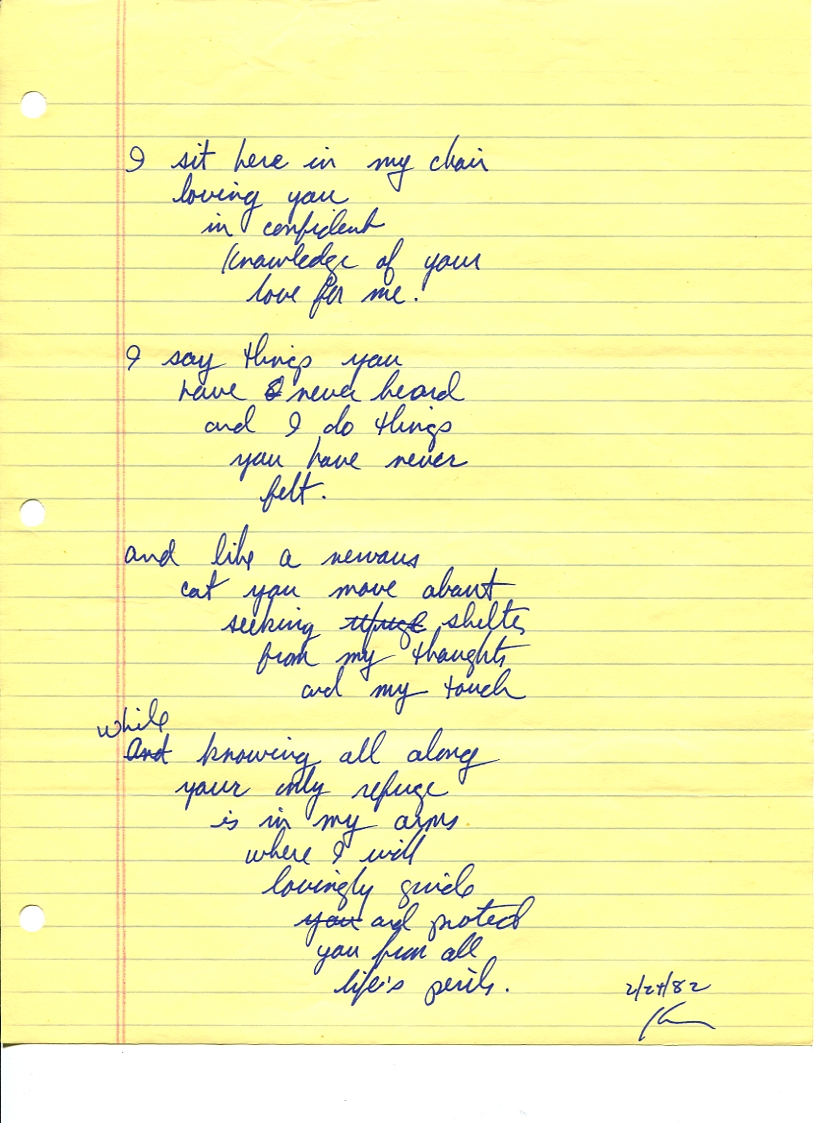 I sit here in my chair
loving you
in confident
knowledge of your
love for me.
I say things you
have never heard
and I do things
you have never
felt.
and like a nervous
cat you move about
seeking refuge shelter
from my thoughts
and my touch
while
And knowing all along
your only refuge
is in my arms
where I will
lovingly guide
you and protect
you from all
life's perils.
2/24/82